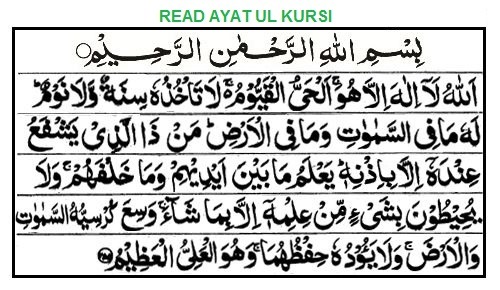 READ AYAT UL KURSI
بِسْمِ اللهِ الرَّحْمٰنِ الرَّحِيْمِ
اَللهُ لَآ اِلٰهَ اِلَّا هُوَۚ اَلْحَيُّ الْقَيُّوْمُ ۚ لَا تَاْخُذُهٗ سِنَةٌ وَّلَا نَوْمٌؕ
لَهٗ مَا فِي السَّمٰوٰتِ وَمَا فِي الْاَرْضِؕ مَنْ ذَا الَّذِيْ يَشْفَعُ
عِنْدَهٗٓ اِلَّا بِاِذْنِهٖؕ يَعْلَمُ مَا بَيْنَ اَيْدِيْهِمْ وَمَا خَلْفَهُمْۚ وَلَا
يُحِيْطُوْنَ بِشَيْءٍ مِّنْ عِلْمِهٖٓ اِلَّا بِمَا شَآءَۚ وَسِعَ كُرْسِيُّهُ السَّمٰوٰتِ
وَالْاَرْضَۚ وَلَا يَـُٔوْدُهٗ حِفْظُهُمَاۚ وَهُوَ الْعَلِيُّ الْعَظِيْمُ